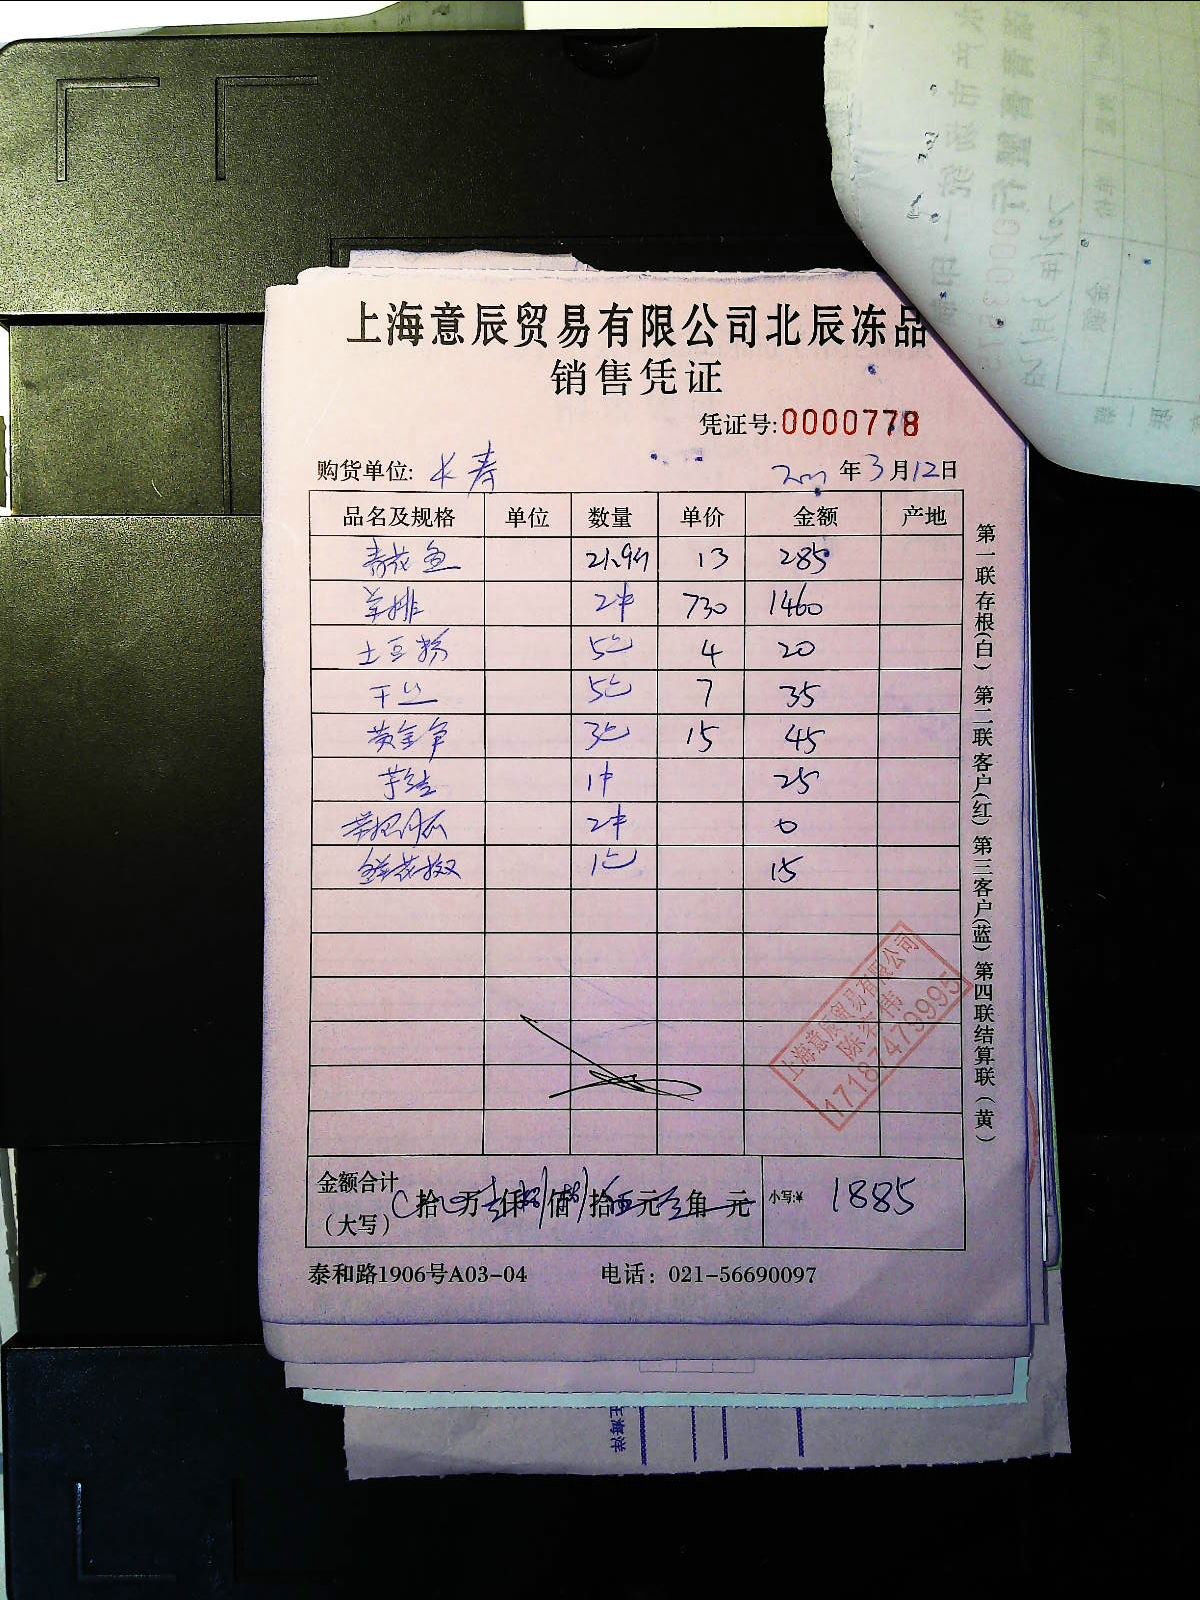 上海意辰贸易有限公司北辰冻品
销售凭证
凭证号:0000778
购货单位: 长寿 年3月12日
品名及规格 单位 数量 单价 金额 产地
青花鱼 21.9斤 13 285
羊排 2件 730 1460
土豆粉 5包 4 20
干丝 5包 7 35
黄金 3包 15 45
芋结 1件 25
2件 0
1包 15
第一联存根(白) 第二联客户(红) 第三客户(蓝) 第四联结算联(黄)
上海意辰贸易有限公司
17187479995
金额合计
(大写) 拾 万 仟捌佰捌拾伍元 角 元 小写:¥ 1885
泰和路1906号A03-04 电话: 021-56690097
王海洋